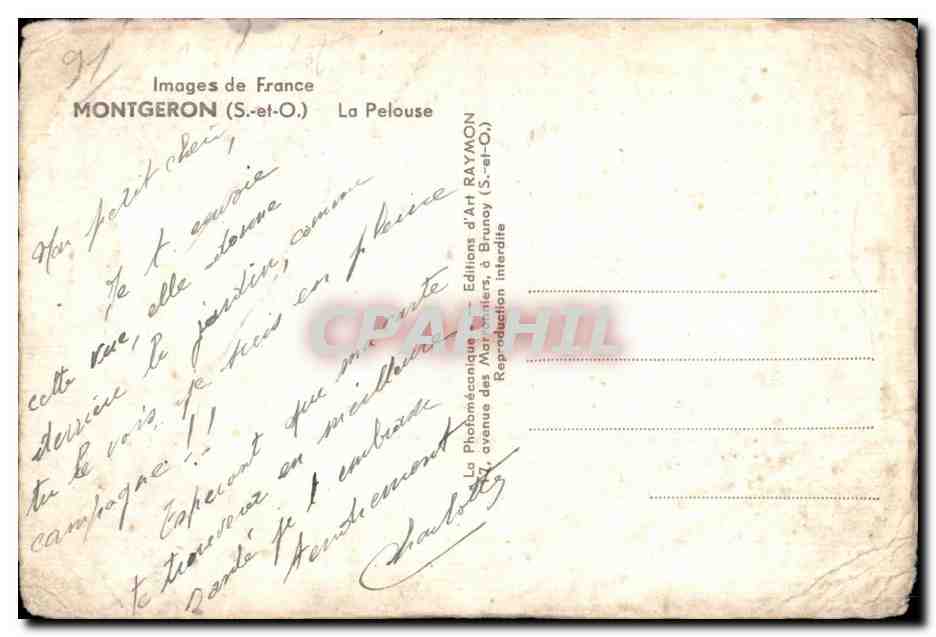 91
Images de France
MONTGERON (S.-et-O.) La Pelouse
Mon petit chéri,
Je t'envoie
cette vue, elle donne
derrière le jardin, comme
tu le vois je suis en pleine
campagne !!
Esperant que ma carte
te trouvera en meilleure
santé je t'embrasse
tendrement
Charlotte
La Photomécanique — Editions d'Art RAYMON
27, avenue des Marronniers, à Brunoy (S.-et-O.)
Reproduction interdite
CPAPHIL